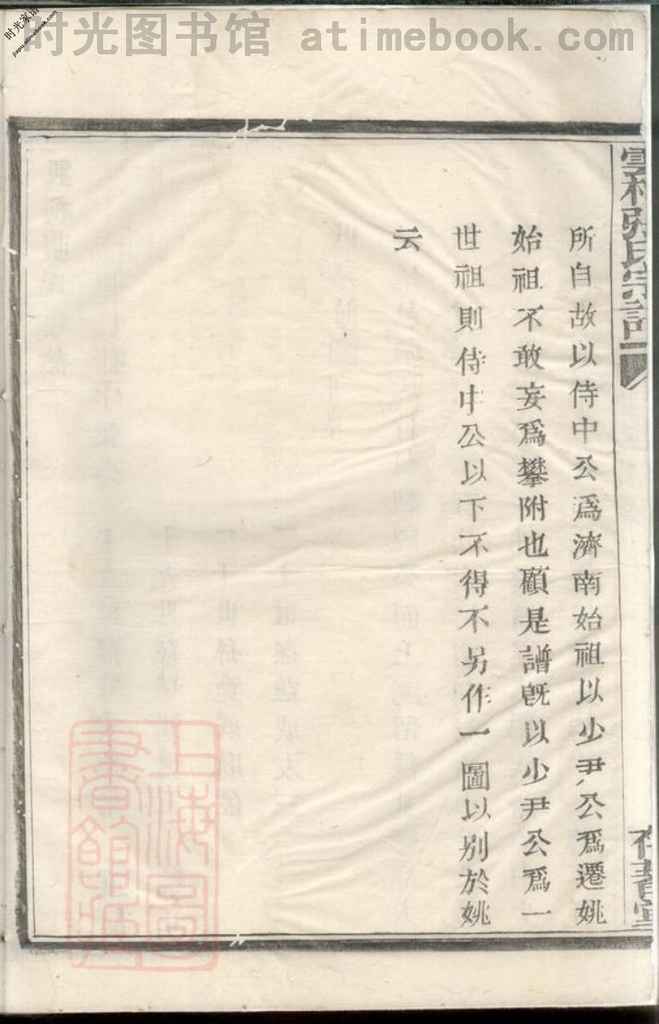 时光图书馆 atimebook.com
所自故以侍中公為濟南始祖以少尹公爲遷姚
始祖不敢妄爲攀附也顧是譜旣以少尹公爲一
世祖則侍中公以下不得不另作一圖以别於姚
云
張氏宗譜
上海圖
書館藏